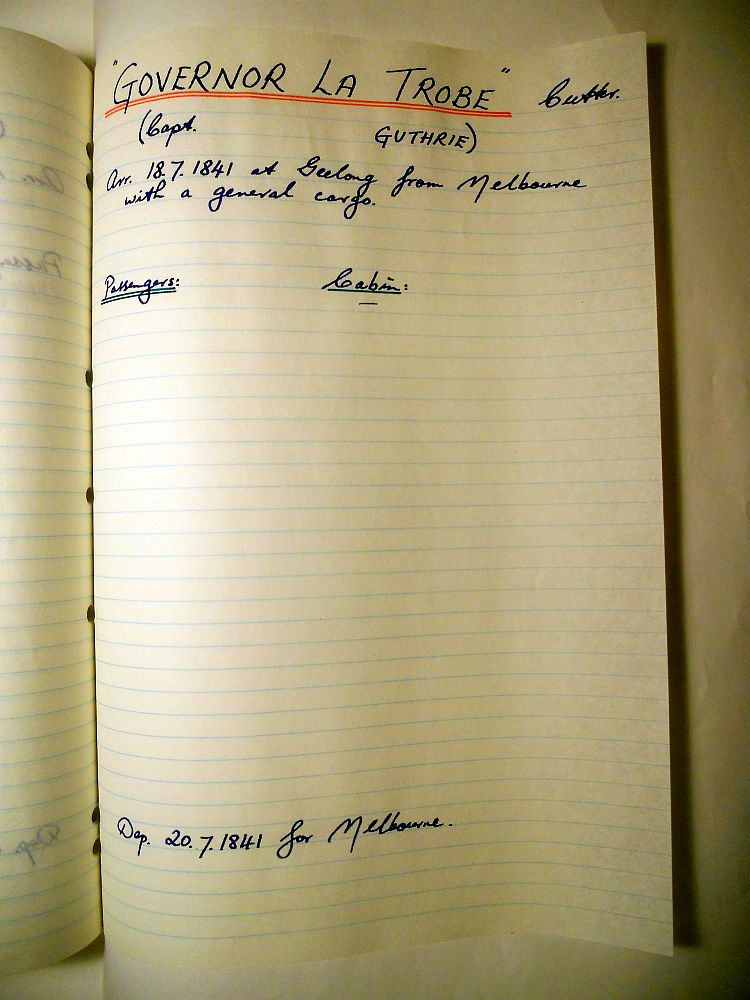 "GOVERNOR LA TROBE" Cutter.
(Capt. GUTHRIE)
Arr. 18.7.1841 at Geelong from Melbourne
with a general cargo.
Passengers: Cabin:
—
Dep. 20.7.1841 for Melbourne.